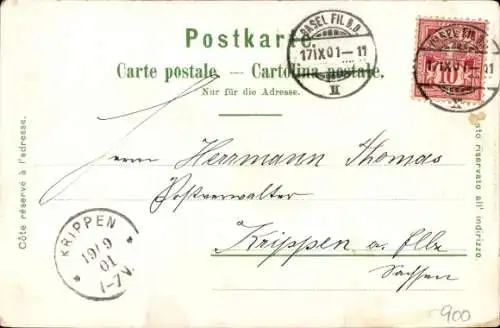 Postkarte.
Carte postale. — Cartolina postale.
Nur für die Adresse.
BASEL FIL. B.B.
17 IX 01 — 11
II
10
17 IX 01 — 11
Côte réservé à l'adresse.
Herrn Herrmann Thomas
Postverwalter
Krippen a. Elbe
Sachsen
KRIPPEN
19/9
01
1-7V.
riservato all' indirizzo.
900